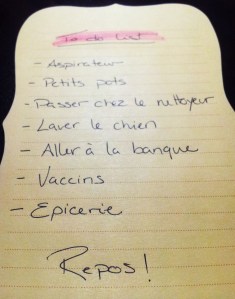 To do list
- Aspirateur
- Petits pots
- Passer chez le nettoyeur
- Laver le chien
- Aller à la banque
- Vaccins
- Epicerie
Repos!